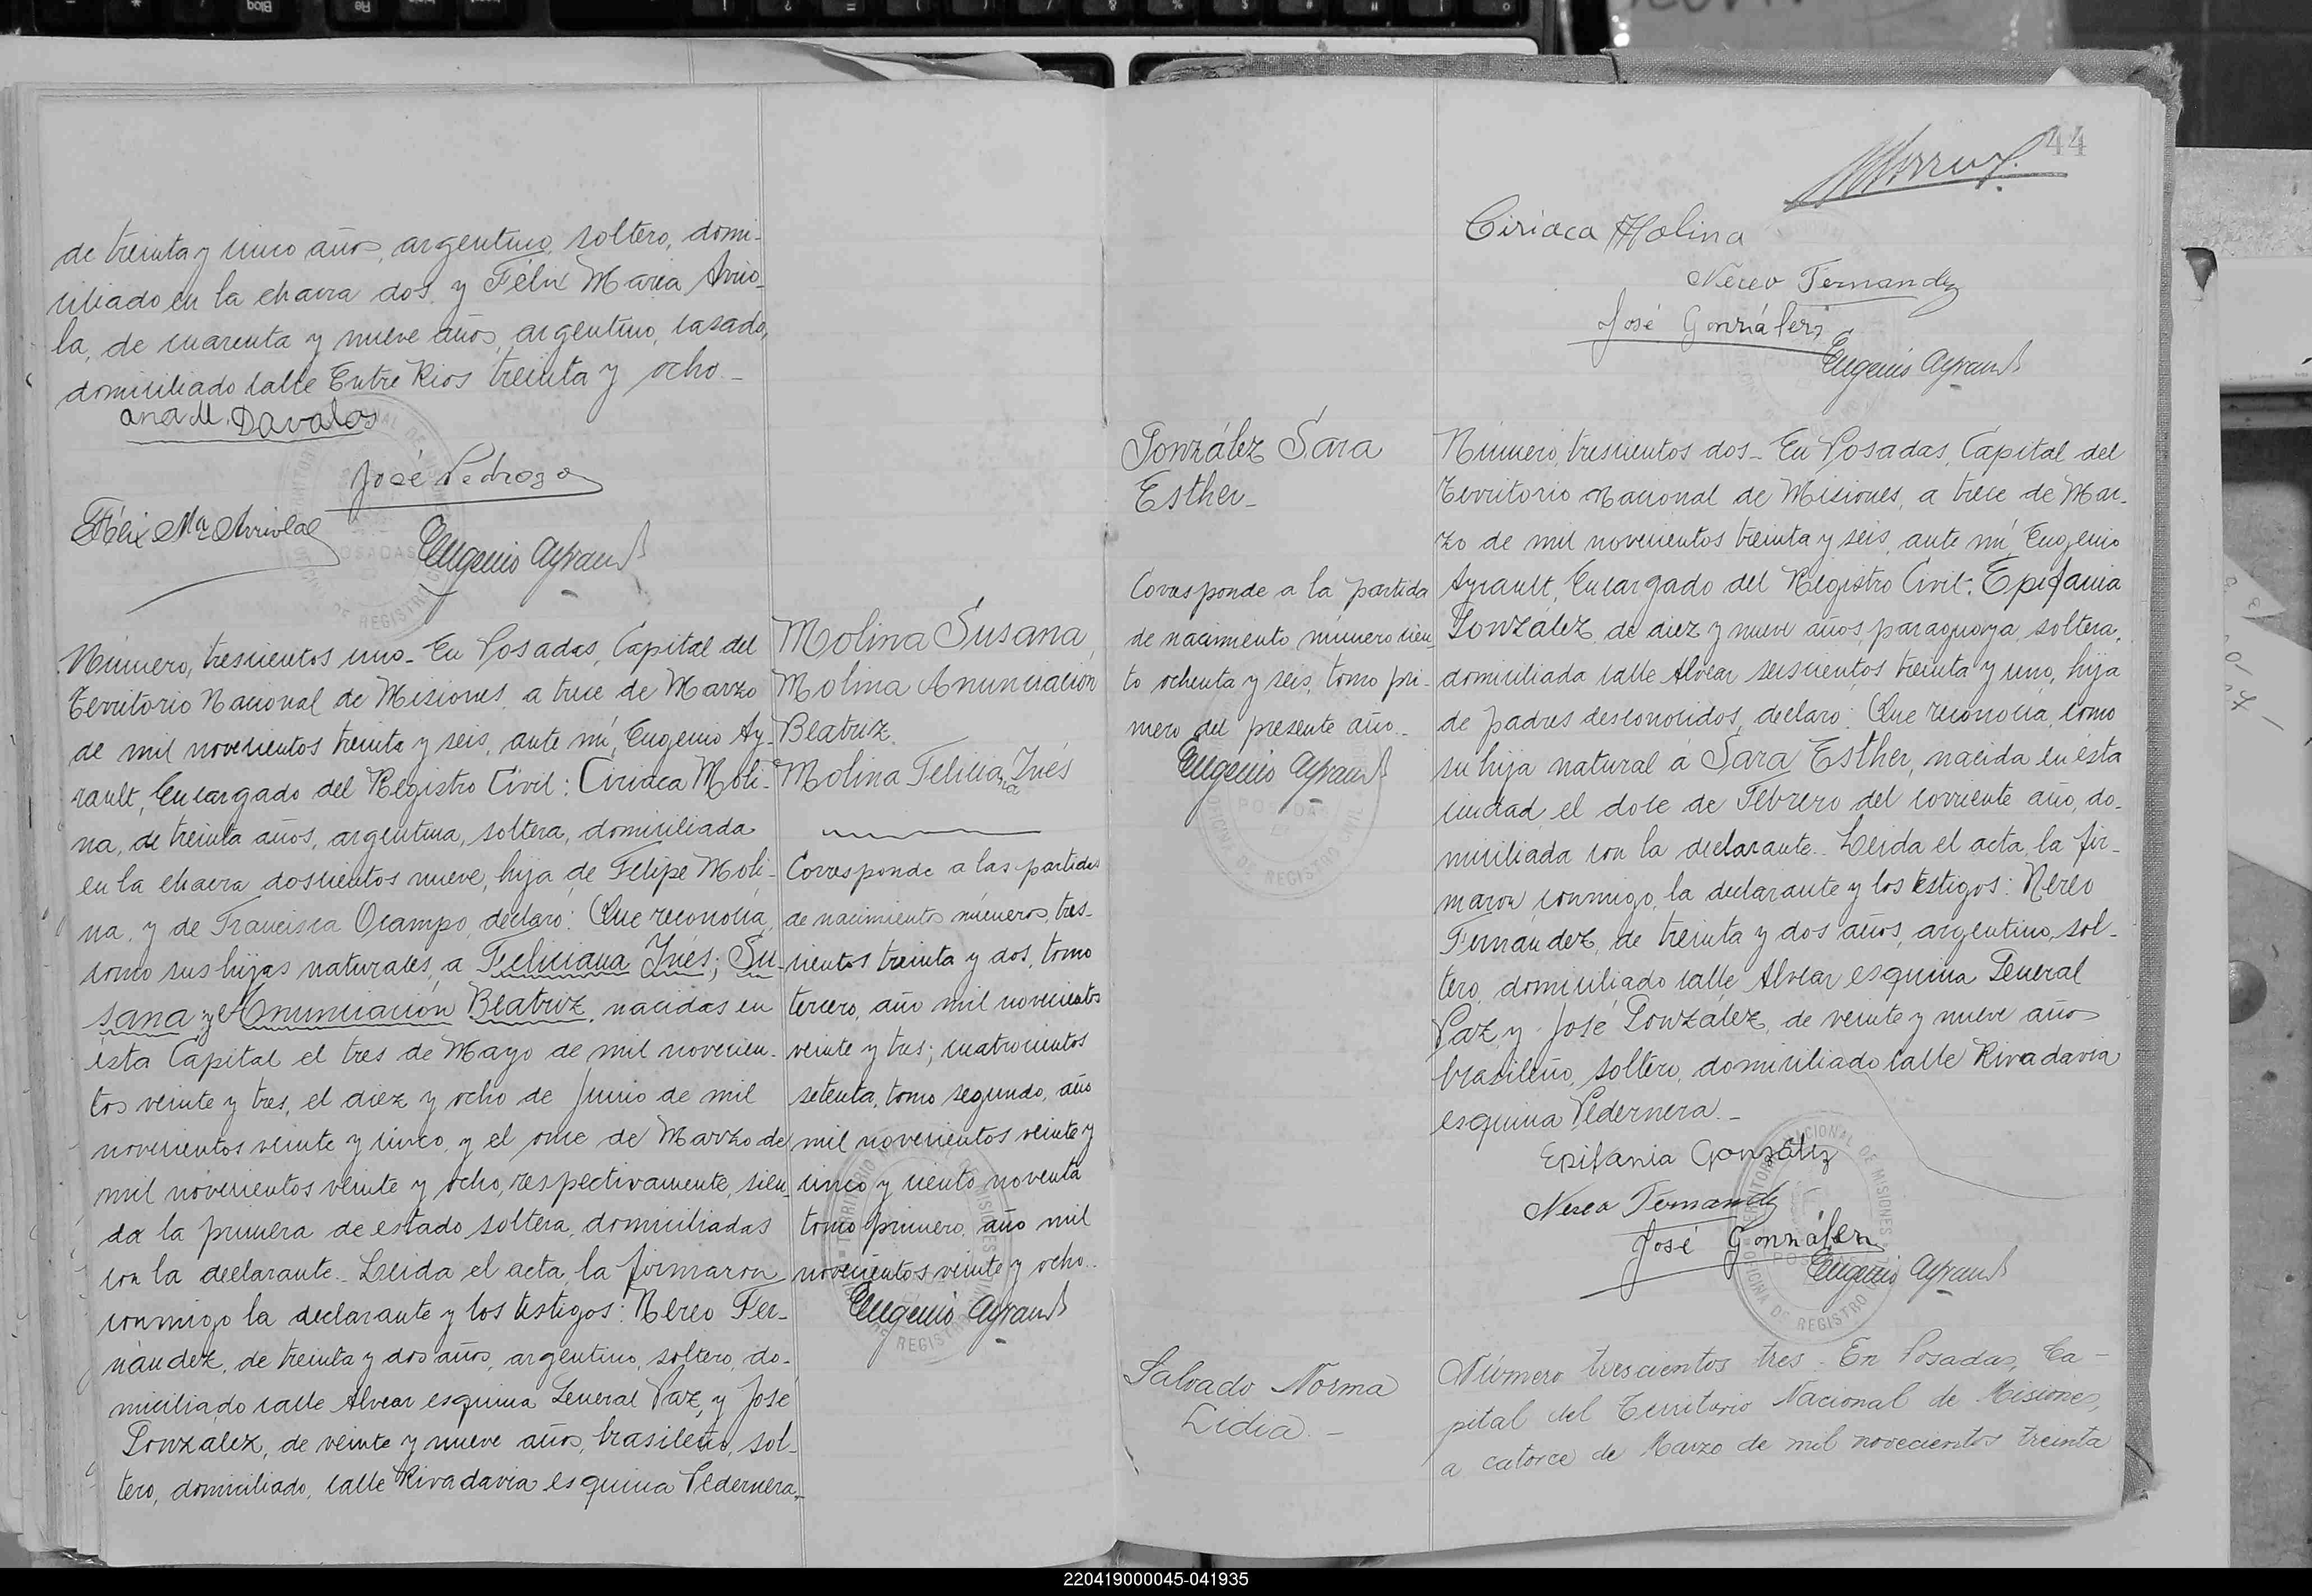 de treinta y cinco años, argentino, soltero, domi-
ciliado en la chacra dos, y Félix Maria Arrio-
la, de cuarenta y nueve años, argentino, casado,
domiciliado calle Entre Rios treinta y ocho.-
Ana M. Davalos
José Pedrozo
Félix Ma Arriola
Eugenio Ayrault
Número, trescientos uno.- En Posadas, Capital del
Territorio Nacional de Misiones, a trece de Marzo
de mil novecientos treinta y seis, ante mí, Eugenio Ay-
rault, Encargado del Registro Civil: Ciriaca Moli-
na, de treinta años, argentina, soltera, domiciliada
en la chacra doscientos nueve, hija de Felipe Moli-
na, y de Francisca Ocampo, declaró: Que reconocía,
como sus hijas naturales, a Feliciana Inés; Su-
sana y Anunciación Beatriz, nacidas en
ésta Capital el tres de Mayo de mil novecien-
tos veinte y tres, el diez y ocho de Junio de mil
novecientos veinte y cinco, y el once de Marzo de
mil novecientos veinte y ocho, respectivamente, sien-
do la primera de estado soltera, domiciliadas
con la declarante.- Leida el acta, la firmaron
conmigo la declarante y los testigos: Nereo Fer-
nández, de treinta y dos años, argentino, soltero, do-
miciliado calle Alvear esquina General Paz, y José
González, de veinte y nueve años, brasileño, sol-
tero, domiciliado, calle Rivadavia esquina Pedernera.-
Molina Susana,
Molina Anunciación
Beatriz.
Molina Feliciana Inés
Corresponde a las partidas
de nacimientos números, tres-
cientos treinta y dos, tomo
tercero, año mil novecientos
veinte y tres; cuatrocientos
setenta, tomo segundo, año
mil novecientos veinte y
cinco y ciento noventa
tomo primero, año mil
novecientos veinte y ocho.-
Eugenio Ayrault
44
Ciriaca Molina
Nereo Fernandez
José Gonzálerz
Eugenio Ayrault
González Sara
Esther.-
Corresponde a la partida
de nacimiento número cien-
to ochenta y seis, tomo pri-
mero del presente año.-
Eugenio Ayrault
POSADAS
OFICINA DE REGISTRO CIVIL
Número, trescientos dos.- En Posadas, Capital del
Territorio Nacional de Misiones, a trece de Mar-
zo de mil novecientos treinta y seis, ante mí, Eugenio
Ayrault, Encargado del Registro Civil: Epifania
González, de diez y nueve años, paraguaya, soltera,
domiciliada calle Alvear seiscientos treinta y uno, hija
de padres desconocidos, declaro: Que reconocía, como
su hija natural á Sara Esther, nacida en ésta
ciudad, el doce de Febrero del corriente año, do-
miciliada con la declarante.- Leida el acta, la fir-
maron conmigo, la declarante y los testigos: Nereo
Fernández, de treinta y dos años, argentino, sol-
tero, domiciliado calle Alvear esquina General
Paz, y José González, de veinte y nueve años
brasileño, soltero, domiciliado calle Rivadavia
esquina Pedernera.-
Epifania González
Nereo Fernandz
José Gonzálerz
Eugenio Ayrault
Salvado Norma
Lidia.-
Número trescientos tres.- En Posadas, Ca-
pital del Territorio Nacional de Misiones,
a catorce de Marzo de mil novecientos treinta
220419000045-041935